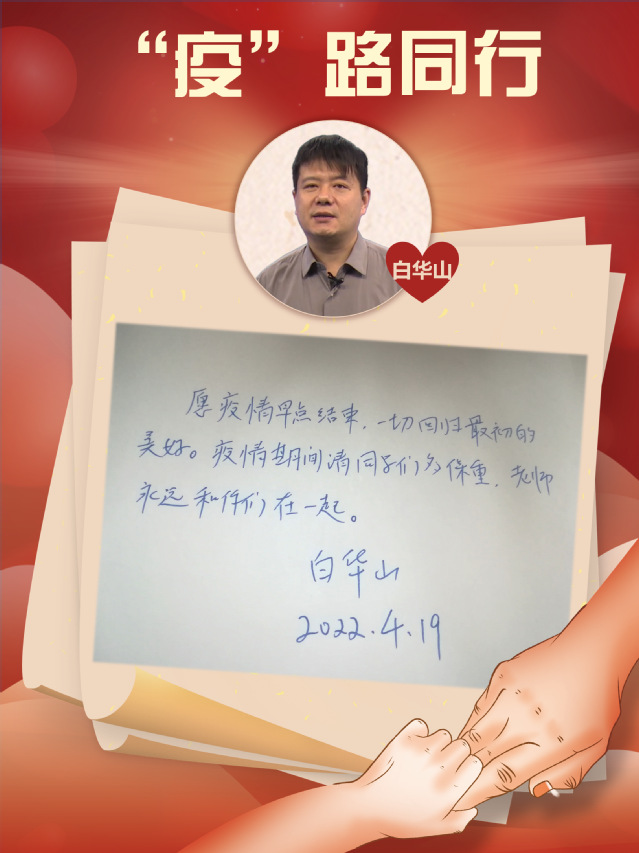 “疫”路同行
白华山
愿疫情早点结束，一切回归最初的
美好。疫情期间请同学们多保重，老师
永远和你们在一起。
白华山
2022.4.19